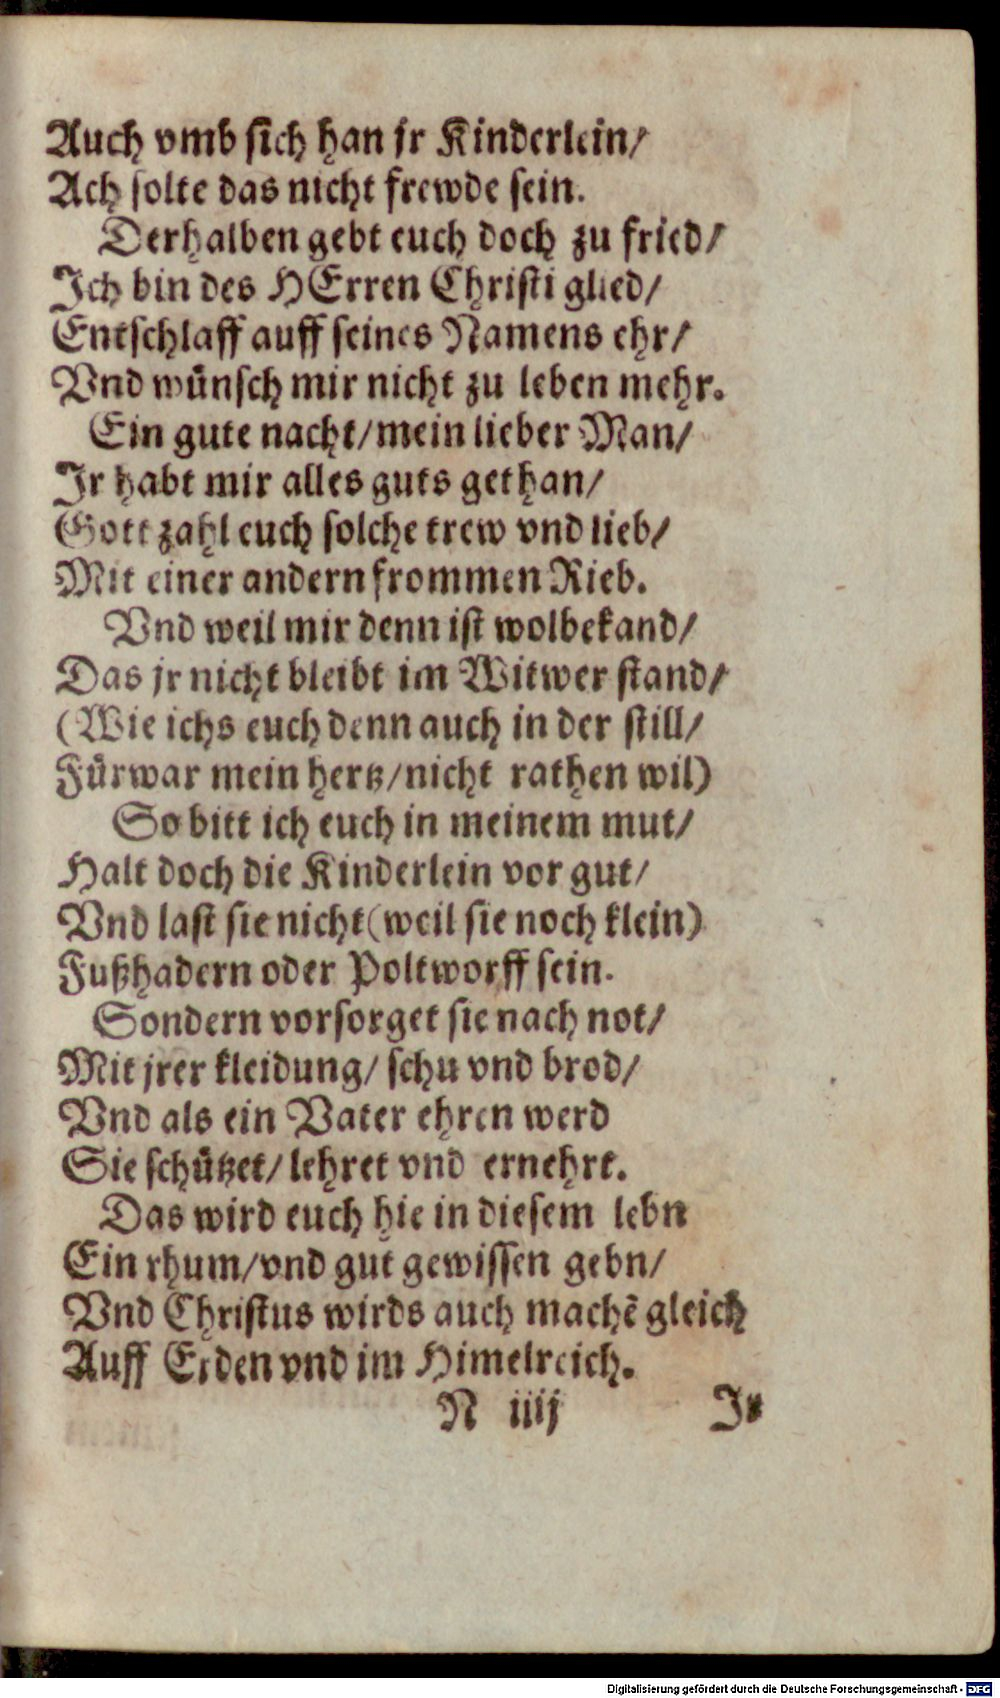 Auch vmb sich han jr Kinderlein/
Ach solte das nicht frewde sein.
Derhalben gebt euch doch zu fried/
Ich bin des HErren Christi glied/
Entschlaff auff seines Namens ehr/
Vnd wünsch mir nicht zu leben mehr.
Ein gute nacht/mein lieber Man/
Ir habt mir alles guts gethan/
Gott zahl euch solche trew vnd lieb/
Mit einer andern frommen Rieb.
Vnd weil mir denn ist wolbekand/
Das jr nicht bleibt im Witwer stand/
(Wie ichs euch denn auch in der still/
Fürwar mein hertz/nicht rathen wil)
So bitt ich euch in meinem mut/
Halt doch die Kinderlein vor gut/
Vnd last sie nicht(weil sie noch klein)
Fußhadern oder Poltworff sein.
Sondern vorsorget sie nach not/
Mit jrer kleidung/ schu vnd brod/
Vnd als ein Vater ehren werd
Sie schützet/ lehret vnd ernehrt.
Das wird euch hie in diesem lebn
Ein rhum/vnd gut gewissen gebn/
Vnd Christus wirds auch machẽ gleich
Auff Erden vnd im Himelreich.
N iiij Ir
Digitalisierung gefördert durch die Deutsche Forschungsgemeinschaft - DFG